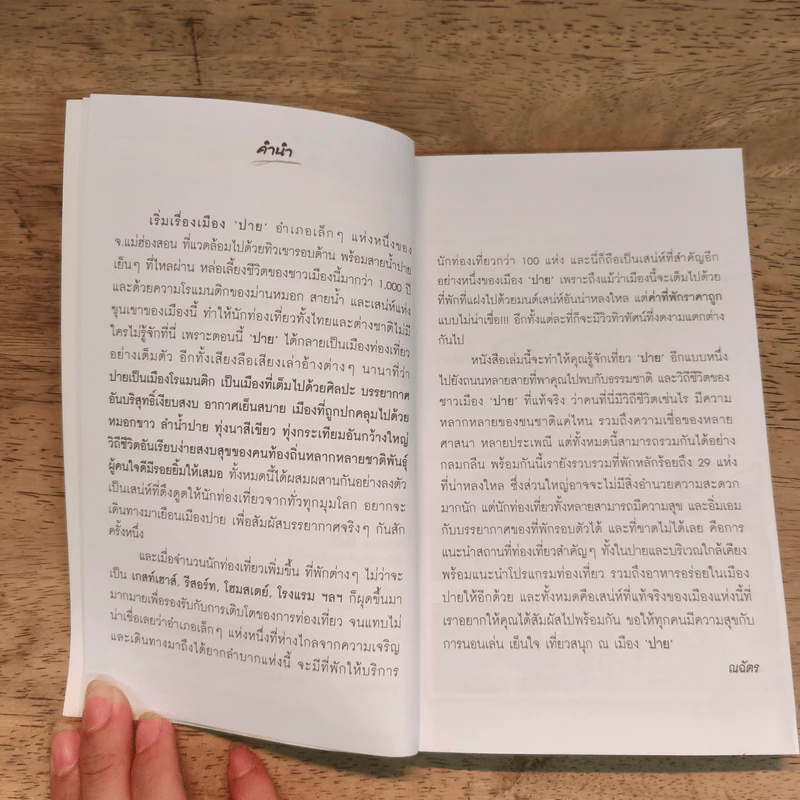 คำนำ
เริ่มเรื่องเมือง 'ปาย' อำเภอเล็กๆ แห่งหนึ่งของ
จ.แม่ฮ่องสอน ที่แวดล้อมไปด้วยทิวเขารอบด้าน พร้อมสายน้ำปาย
เย็นๆ ที่ไหลผ่าน หล่อเลี้ยงชีวิตของชาวเมืองนี้มากว่า 1,000 ปี
และด้วยความโรแมนติกของม่านหมอก สายน้ำ และเสน่ห์แห่ง
ขุนเขาของเมืองนี้ ทำให้นักท่องเที่ยวทั้งไทยและต่างชาติไม่มี
ใครไม่รู้จักที่นี่ เพราะตอนนี้ 'ปาย' ได้กลายเป็นเมืองท่องเที่ยว
อย่างเต็มตัว อีกทั้งเสียงลือเสียงเล่าอ้างต่างๆ นานาที่ว่า
ปายเป็นเมืองโรแมนติก เป็นเมืองที่เต็มไปด้วยศิลปะ บรรยากาศ
อันบริสุทธิ์เงียบสงบ อากาศเย็นสบาย เมืองที่ถูกปกคลุมไปด้วย
หมอกขาว ลำน้ำปาย ทุ่งนาสีเขียว ทุ่งกระเทียมอันกว้างใหญ่
วิถีชีวิตอันเรียบง่ายสงบสุขของคนท้องถิ่นหลากหลายชาติพันธุ์
ผู้คนใจดีมีรอยยิ้มให้เสมอ ทั้งหมดนี้ได้ผสมผสานกันอย่างลงตัว
เป็นเสน่ห์ที่ดึงดูดให้นักท่องเที่ยวจากทั่วทุกมุมโลก อยากจะ
เดินทางมาเยือนเมืองปาย เพื่อสัมผัสบรรยากาศจริงๆ กันสัก
ครั้งหนึ่ง
และเมื่อจำนวนนักท่องเที่ยวเพิ่มขึ้น ที่พักต่างๆ ไม่ว่าจะ
เป็น เกสท์เฮาส์, รีสอร์ท, โฮมสเตย์, โรงแรม ฯลฯ ก็ผุดขึ้นมา
มากมายเพื่อรองรับกับการเติบโตของการท่องเที่ยว จนแทบไม่
น่าเชื่อเลยว่าอำเภอเล็กๆ แห่งหนึ่งที่ห่างไกลจากความเจริญ
และเดินทางมาถึงได้ยากลำบากแห่งนี้ จะมีที่พักให้บริการ
นักท่องเที่ยวกว่า 100 แห่ง และนี่ก็ถือเป็นเสน่ห์ที่สำคัญอีก
อย่างหนึ่งของเมือง 'ปาย' เพราะถึงแม้ว่าเมืองนี้จะเต็มไปด้วย
ที่พักที่แฝงไปด้วยมนต์เสน่ห์อันน่าหลงใหล แต่ค่าที่พักราคาถูก
แบบไม่น่าเชื่อ!!! อีกทั้งแต่ละที่ก็จะมีวิวทิวทัศน์ที่งดงามแตกต่าง
กันไป
หนังสือเล่มนี้จะทำให้คุณรู้จักเที่ยว 'ปาย' อีกแบบหนึ่ง
ไปยังถนนหลายสายที่พาคุณไปพบกับธรรมชาติ และวิถีชีวิตของ
ชาวเมือง 'ปาย' ที่แท้จริง ว่าคนที่นี่มีวิถีชีวิตเช่นไร มีความ
หลากหลายของชนชาติแค่ไหน รวมถึงความเชื่อของหลาย
ศาสนา หลายประเพณี แต่ทั้งหมดนี้สามารถรวมกันได้อย่าง
กลมกลืน พร้อมกันนี้เรายังรวบรวมที่พักหลักร้อยถึง 29 แห่ง
ที่น่าหลงใหล ซึ่งส่วนใหญ่อาจจะไม่มีสิ่งอำนวยความสะดวก
มากนัก แต่นักท่องเที่ยวทั้งหลายสามารถมีความสุข และอิ่มเอม
กับบรรยากาศของที่พักรอบตัวได้ และที่ขาดไม่ได้เลย คือการ
แนะนำสถานที่ท่องเที่ยวสำคัญๆ ทั้งในปายและบริเวณใกล้เคียง
พร้อมแนะนำโปรแกรมท่องเที่ยว รวมถึงอาหารอร่อยในเมือง
ปายให้อีกด้วย และทั้งหมดคือเสน่ห์ที่แท้จริงของเมืองแห่งนี้ที่
เราอยากให้คุณได้สัมผัสไปพร้อมกัน ขอให้ทุกคนมีความสุขกับ
การนอนเล่น เย็นใจ เที่ยวสนุก ณ เมือง 'ปาย'
ณฉัตร